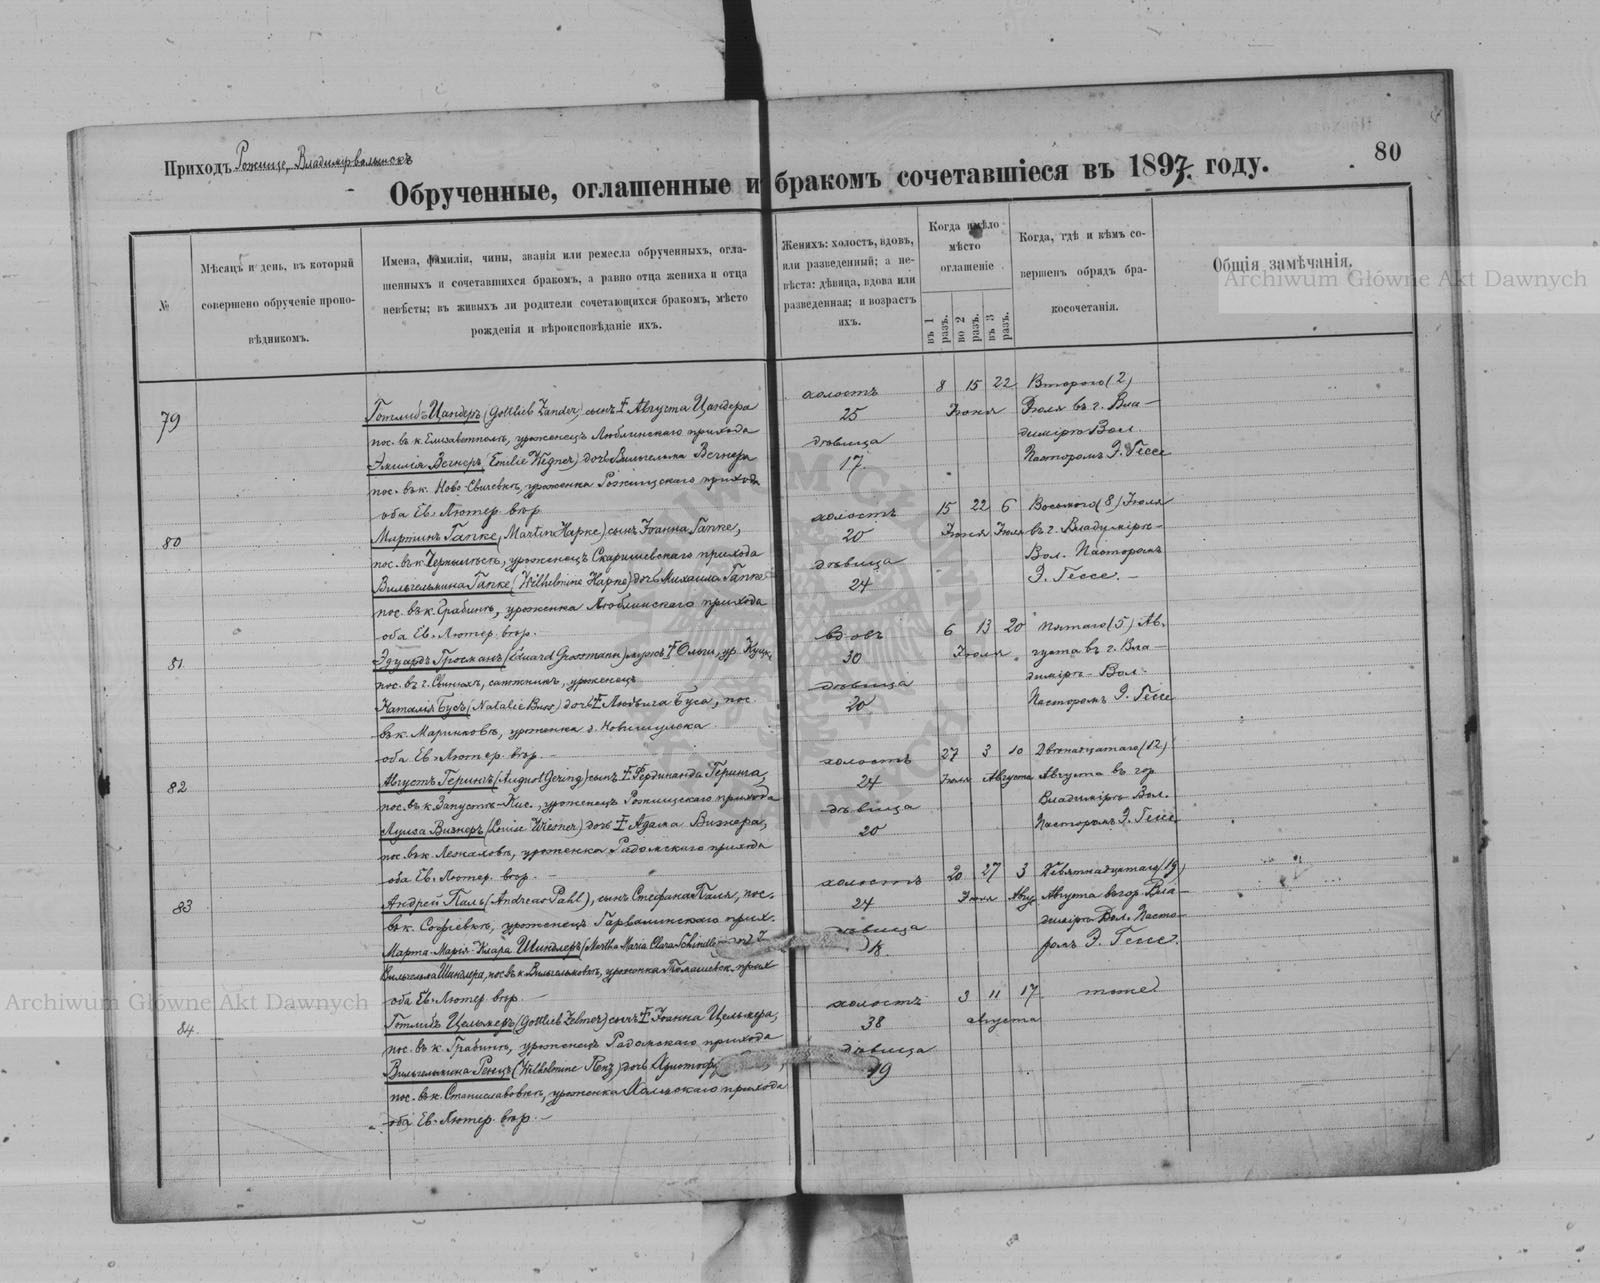 80
Приходъ Рожище, Владимірволынскъ
Обрученные, оглашенные и бракомъ сочетавшіеся въ 1897 году.
№
Мѣсяцъ и день, въ который
совершено обрученіе пропо-
вѣдникомъ.
Имена, фамиліи, чины, званія или ремесла обрученныхъ, огла-
шенныхъ и сочетавшихся бракомъ, а равно отца жениха и отца
невѣсты; въ живыхъ ли родители сочетающихся бракомъ, мѣсто
рожденія и вѣроисповѣданіе ихъ.
Женихъ: холостъ, вдовъ,
или разведенный; а не-
вѣста: дѣвица, вдова или
разведенная; и возрастъ
ихъ.
Когда имѣло
мѣсто
оглашеніе
въ 1 разъ.
во 2 разъ.
въ 3 разъ.
Когда, гдѣ и кѣмъ со-
вершенъ обрядъ бра-
косочетанія.
Общія замѣчанія.
79
Готлибъ Цандеръ (Gottlieb Zander) сынъ † Августа Цандера
пос. въ к. Елизаветполь, уроженецъ Люблинскаго прихода
Эмилія Вегнеръ (Emilie Wegner) дочь Вильгельма Вегнера
пос. въ к. Ново-, уроженка Рожищскаго прихода
оба Ев. Лютер. вѣр.
холостъ
25
дѣвица
17.
8 15 22
Іюня
Второго (2)
Іюля въ г. Вла-
димірѣ Вол.
Пасторомъ Э. Гессе
80
Мартинъ Гапке (Martin Hapke) сынъ Іоанна Гапке,
пос. въ к., уроженецъ Скаришевскаго прихода
Вильгельмина Гапке (Wilhelmine Hapke) дочь Михаила Гапке
пос. въ к. Грабинѣ, уроженка Люблинскаго прихода
оба Ев. Лютер. вѣр.
холостъ
20
дѣвица
24
15 22 6
Іюня Іюля
Восьмого (8) Іюля
въ г. Владимірѣ-
Вол. Пасторомъ
Э. Гессе. —
81
Эдуардъ Гросманъ (Eduard Grossmann) мужъ † Ольги, ур.
пос. въ г. Свинюхъ, уроженецъ
Наталія Бусъ (Natalie Buss) дочь † Людвига Буса, пос.
въ к. Мариновѣ, уроженка
оба Ев. Лютер. вѣр. —
вдовъ
30
дѣвица
20
6 13 20
Іюля
Пятаго (5) Ав-
густа въ г. Вла-
димірѣ- Вол.
Пасторомъ Э. Гессе
82
Августъ Герингъ (August Gering) сынъ † Фердинанда Геринга,
пос. въ к., уроженецъ Рожищскаго прихода
Луиза Визнеръ (Louise Wiesner) дочь † Адама Визнера,
пос. въ к., уроженка Радомскаго прихода
оба Ев. Лютер. вѣр. —
холостъ
24
дѣвица
20
27 3 10
Іюля Августа
Двѣнадцатаго (12)
Августа въ гор.
Владимірѣ Вол.
Пасторомъ Э. Гессе
83
Андрей Паль (Andreas Pahl), сынъ Стефана Паля, пос.
въ к. Софіевкѣ, уроженецъ прих.
Марта-Марія-Клара Шиндлеръ (Martha Maria Clara Schindler)
Вильгельма Шиндлера, пос. въ к., уроженка Томашевск. прих
оба Ев. Лютер. вѣр. —
холостъ
24
дѣвица
18.
20 27 3
Іюля Авгу
Девятнадцатаго (19)
Августа въ гор. Вла-
димірѣ Вол. Пасто-
ромъ Э. Гессе.
84
Готлибъ Цельмеръ (Gottlieb Zelmer) сынъ † Іоанна Цельмера,
пос. въ к. Грабинѣ, уроженецъ Радомскаго прихода
Вильгельмина Ренцъ (Wilhelmine Renz) дочь
пос. въ к. Станиславовкѣ, уроженка прихода
оба Ев. Лютер. вѣр. —
холостъ
38
дѣвица
19
3 11 17
августа
тоже
Archiwum Główne Akt Dawnych
Archiwum Główne Akt Dawnych